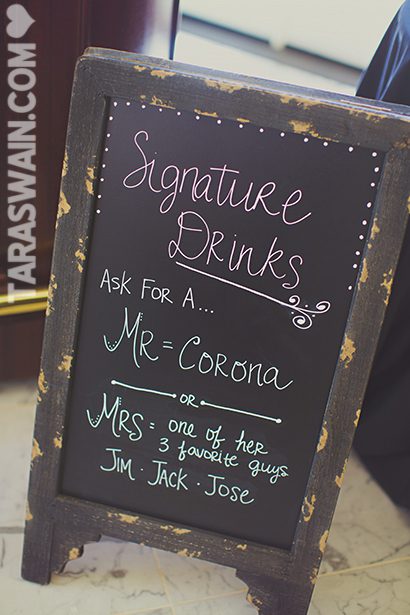 TARASWAIN.COM
Signature
Drinks
Ask For A...
Mr = Corona
or
Mrs = one of her
3 favorite guys
Jim · Jack · Jose